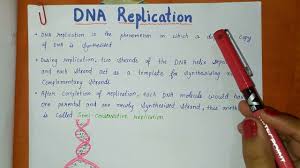 DNA Replication
• DNA replication is the phenomenon in which a copy
of DNA is synthesized
• During replication, two strands of the DNA helix
and each strand act as a template for synthesizing
Complementary Strands
• After completion of replication, each DNA molecule would have
one parental and one newly synthesized strand, this
is called Semi-conservative replication